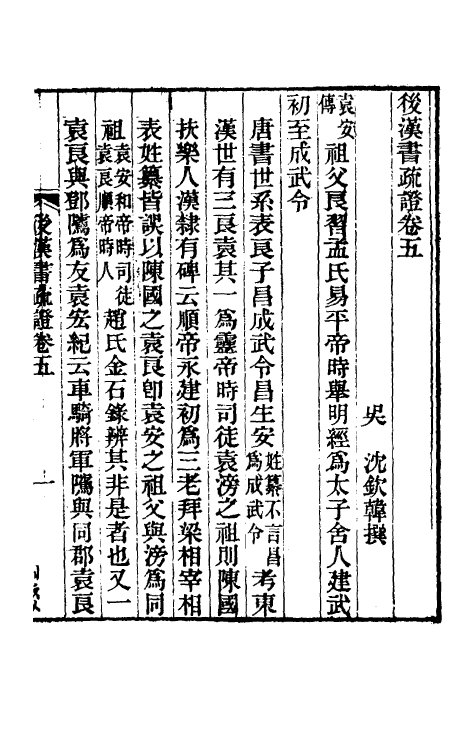 後漢書疏證卷五
吳 沈欽韓撰
袁安傳 祖父良習孟氏易平帝時舉明經為太子舍人建武
初至成武令
唐書世系表良子昌成武令昌生安姓纂不言昌為成武令考東
漢世有三良袁其一為靈帝時司徒袁滂之祖則陳國
扶樂人漢隸有碑云順帝永建初為三老拜梁相宰相
表姓纂皆誤以陳國之袁良卽袁安之祖父與滂為同
祖袁安和帝時司徒袁良順帝時人趙氏金石錄辨其非是者也又一
袁良與鄧隲為友袁宏紀云車騎將軍隲與同郡袁良
後漢書疏證卷五
一